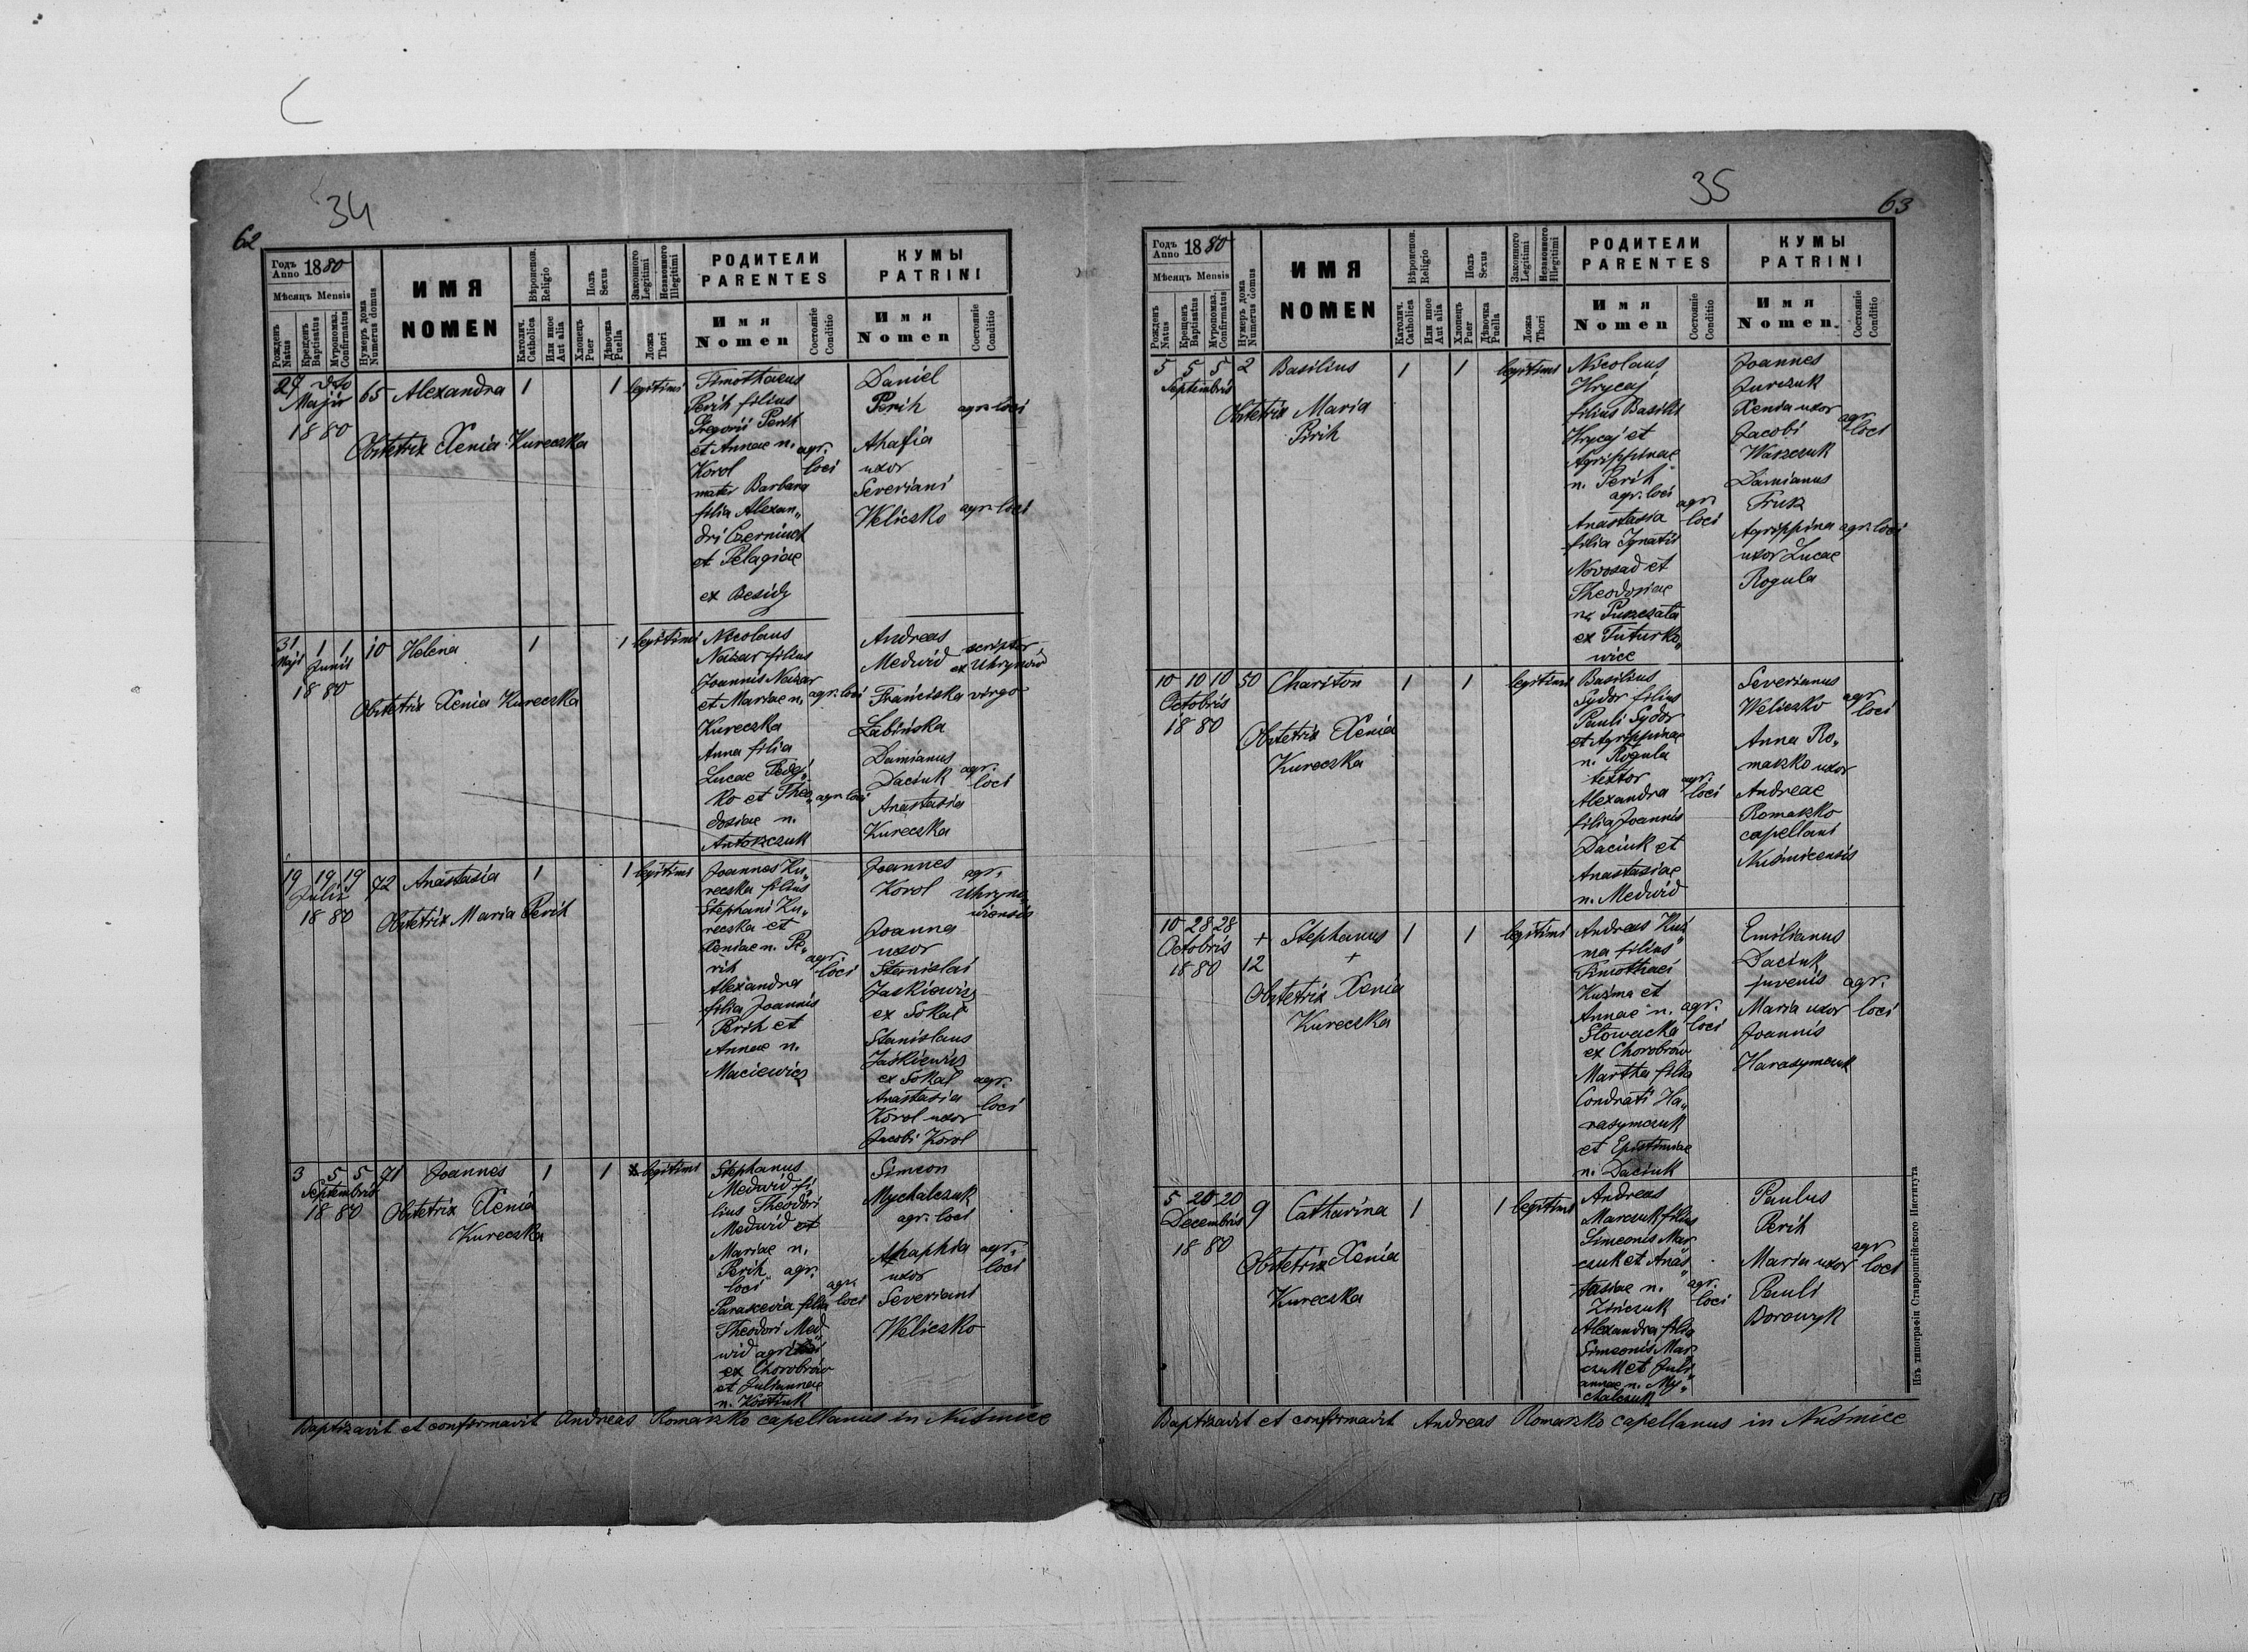 34
62
Годъ Anno 1880
Мѣсяцъ Mensis
Рожденъ Natus
Крещенъ Baptisatus
Мѵропомаз. Confirmatus
Нумеръ дома Numerus domus
ИМЯ
NOMEN
Вѣроиспов. Religio
Католич. Catholica
Или иное Aut alia
Полъ Sexus
Хлопецъ Puer
Дѣвочка Puella
Законного Legitimi
Незаконного Illegitimi
Ложа Thori
РОДИТЕЛИ
PARENTES
Имя
Nomen
Состояніе Conditio
КУМЫ
PATRINI
Имя
Nomen
Состояніе Conditio
Maji
1880
65 Alexandra 1 1 legitimi
Obstetrix Xenia Kureczka
Timothaeus
Perih filius
Gregorii Perih
et Annae n.
Korol
agr. loci
mater Barbara
filia Alexan„
dri
et Pelagiae
ex
Daniel
Perih
agr. loci
Ahafia
uxor
Severiani
Weliczko
agr. loci
31 1 1
Maji Junii
1880
10 Helena 1 1 legitimi
Obstetrix Xenia Kureczka
Nicolaus
Nazar filius
Joannis Nazar
et Mariae n.
agr. loci
Kureczka
Anna filia
Lucae
ko et Theo„
agr. loci
dosiae n.
Antoszczuk
Andreas
Medwid
scriptor
ex Uhrynów
Franciska virgo
Łabińska
Damianus
Daciuk
agr. loci
Anastasia
Kureczka
19 19 19
Julii
1880
72 Anastasia 1 1 legitimi
Obstetrix Maria Perih
Joannes Ku„
reczka filius
Stephani Ku„
reczka et
Xeniae n. Pe„
rih
agr. loci
Alexandra
filia Joannis
Perih et
Annae n.
Maciewicz
Joannes
Korol
agr.
Uhryno„
wiensis
Joanna
uxor
Stanislai
Jaskiewicz
ex Sokal
Stanislaus
Jaskiewicz
ex Sokal
Anastasia
agr. loci
Korol uxor
Jacobi Korol
3 5 5
Septembris
1880
71 Joannes 1 1 legitimi
Obstetrix Xenia
Kureczka
Stephanus
Medwid fi
lius Theodori
Medwid et
Mariae n.
Perih agr.
loci
agr. loci
Parascevia filia
Theodori Med„
wid
ex Chorobrów
et Juliannae
n. Kostiuk
Simeon
Mychalczuk
agr. loci
Ahaphia
uxor
agr. loci
Severiani
Weliczko
Baptizavit et confirmavit Andreas Romaszko capellanus in Nuśmice
35
63
Годъ Anno 1880
Мѣсяцъ Mensis
Рожденъ Natus
Крещенъ Baptisatus
Мѵропомаз. Confirmatus
Нумеръ дома Numerus domus
ИМЯ
NOMEN
Вѣроиспов. Religio
Католич. Catholica
Или иное Aut alia
Полъ Sexus
Хлопецъ Puer
Дѣвочка Puella
Законного Legitimi
Незаконного Illegitimi
Ложа Thori
РОДИТЕЛИ
PARENTES
Имя
Nomen
Состояніе Conditio
КУМЫ
PATRINI
Имя
Nomen.
Состояніе Conditio
5 5 5
Septembris
2 Basilius 1 1 legitimi
Obstetrix Maria
Pirih
Nicolaus
Hrycaj
filius Basilii
Hrycaj et
Agrippinae
n. Perih
agr. loci
agr. loci
Anastasia
filia Ignatii
Nowosad et
Theodosiae
n.
ex Tuturko„
wice
Joannes
Jurczuk
Xenia uxor
Jacobi
agr. loci
Waszczuk
Damianus
Frusz
Agrippina agr. loci
uxor Lucae
Rogula
10 10 10
Octobris
1880
50 Chariton 1 1 legitimi
Obstetrix Xenia
Kureczka
Basilius
Sydor filius
Pauli Sydor
et Agrippinae
n. Rogula
textor
agr. loci
Alexandra
filia Joannis
Daciuk et
Anastasiae
n. Medwid
Severianus
Weliczko
agr loci
Anna Ro„
maszko uxor
Andreae
Romaszko
capellani
Nuśmicensis
10 28 28
Octobris
1880
+
12
Stephanus 1 1 legitimi
+
Obstetrix Xenia
Kureczka
Andreas Kuś„
ma filius
Timothaei
Kuśma et
Annae n. agr.
Słowacka loci
ex Chorobrów
Martha filia
Condrati Ha„
rasymczuk
et Epistimiae
n. Daciuk
Emilianus
Daciuk
juvenis agr.
Maria uxor loci
Joannis
Harasymczuk
5 20 20
Decembris
1880
9 Catharina 1 1 legitimi
Obstetrix Xenia
Kureczka
Andreas
Marczuk filius
Simeonis Mar„
czuk et Anas„
tasiae n.
agr. loci
Zińczuk
Alexandra filia
Simeonis Mar„
czuk et Juli„
annae n. My„
chalczuk
Paulus
Perih
Maria uxor
agr loci
Pauli
Borowyk
Baptizavit et confirmavit Andreas Romaszko capellanus in Nuśmice
Изъ типографіи Ставропигійского Института